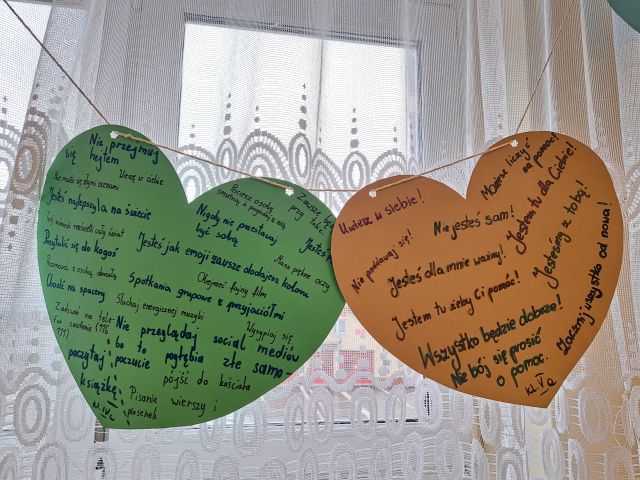 Nie przejmuj
się hejtem
Wierzę w ciebie
Nie martw się złymi ocenami
Jesteś najlepszy/a na świecie
Twój uśmiech rozświetla cały świat
Przytul się do kogoś
Rozmowa z osobą dorosłą
Chodź na spacery
Zadzwoń na tele-
fon zaufania (116
111)
poczytaj
książkę
kl. IV c
Bądź z osobą
smutną i pogadaj z nią
Zawsze będę
przy tobie
Nigdy nie przestawaj
być sobą
Jesteś jak emoji zawsze dodajesz koloru
Masz piękne oczy
Obejrzeć fajny film
Spotkania grupowe z przyjaciółmi
Słuchaj energicznej muzyki
Wyśpij się
Nie przeglądaj social mediów
bo to pogłębia złe samo-
poczucie
pójść do kościoła
Pisanie wierszy i
piosenek
Uwierz w siebie!
Możesz liczyć
na pomoc!
Nie jesteś sam!
Jestem tu dla Ciebie!
Nie poddawaj się!
Jesteś dla mnie ważny!
Jestem z tobą!
Jestem tu żeby Ci pomóc!
Zacznij wszystko od nowa!
Wszystko będzie dobrze!
Nie bój się prosić
o pomoc.
kl. V a